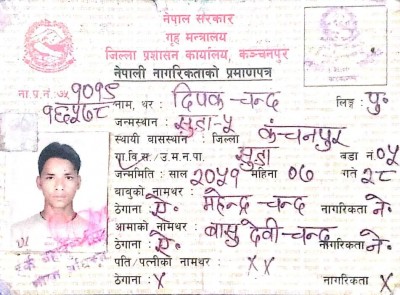 नेपाल सरकार
गृह मन्त्रालय
जिल्ला प्रशासन कार्यालय, कञ्चनपुर
नेपाली नागरिकताको प्रमाणपत्र
ना.प्र.नं. ७५ १०१९
१६५७८ नाम, थर : दिपक चन्द लिङ्ग पु.
जन्मस्थान : सुडा-५
स्थायी वासस्थान : जिल्ला कंचनपुर
गा.वि.स./उ.म.न.पा. सुडा वडा नं. ०५
जन्ममिति : साल २०५१ महिना ०७ गते २८
बाबुको नामथर : महेन्द्र चन्द
ठेगाना : ऐ. नागरिकता ने.
आमाको नामथर : बासु देवी चन्द
ठेगाना : ऐ. नागरिकता ने.
पति/पत्नीको नामथर : x x
ठेगाना : x नागरिकता x